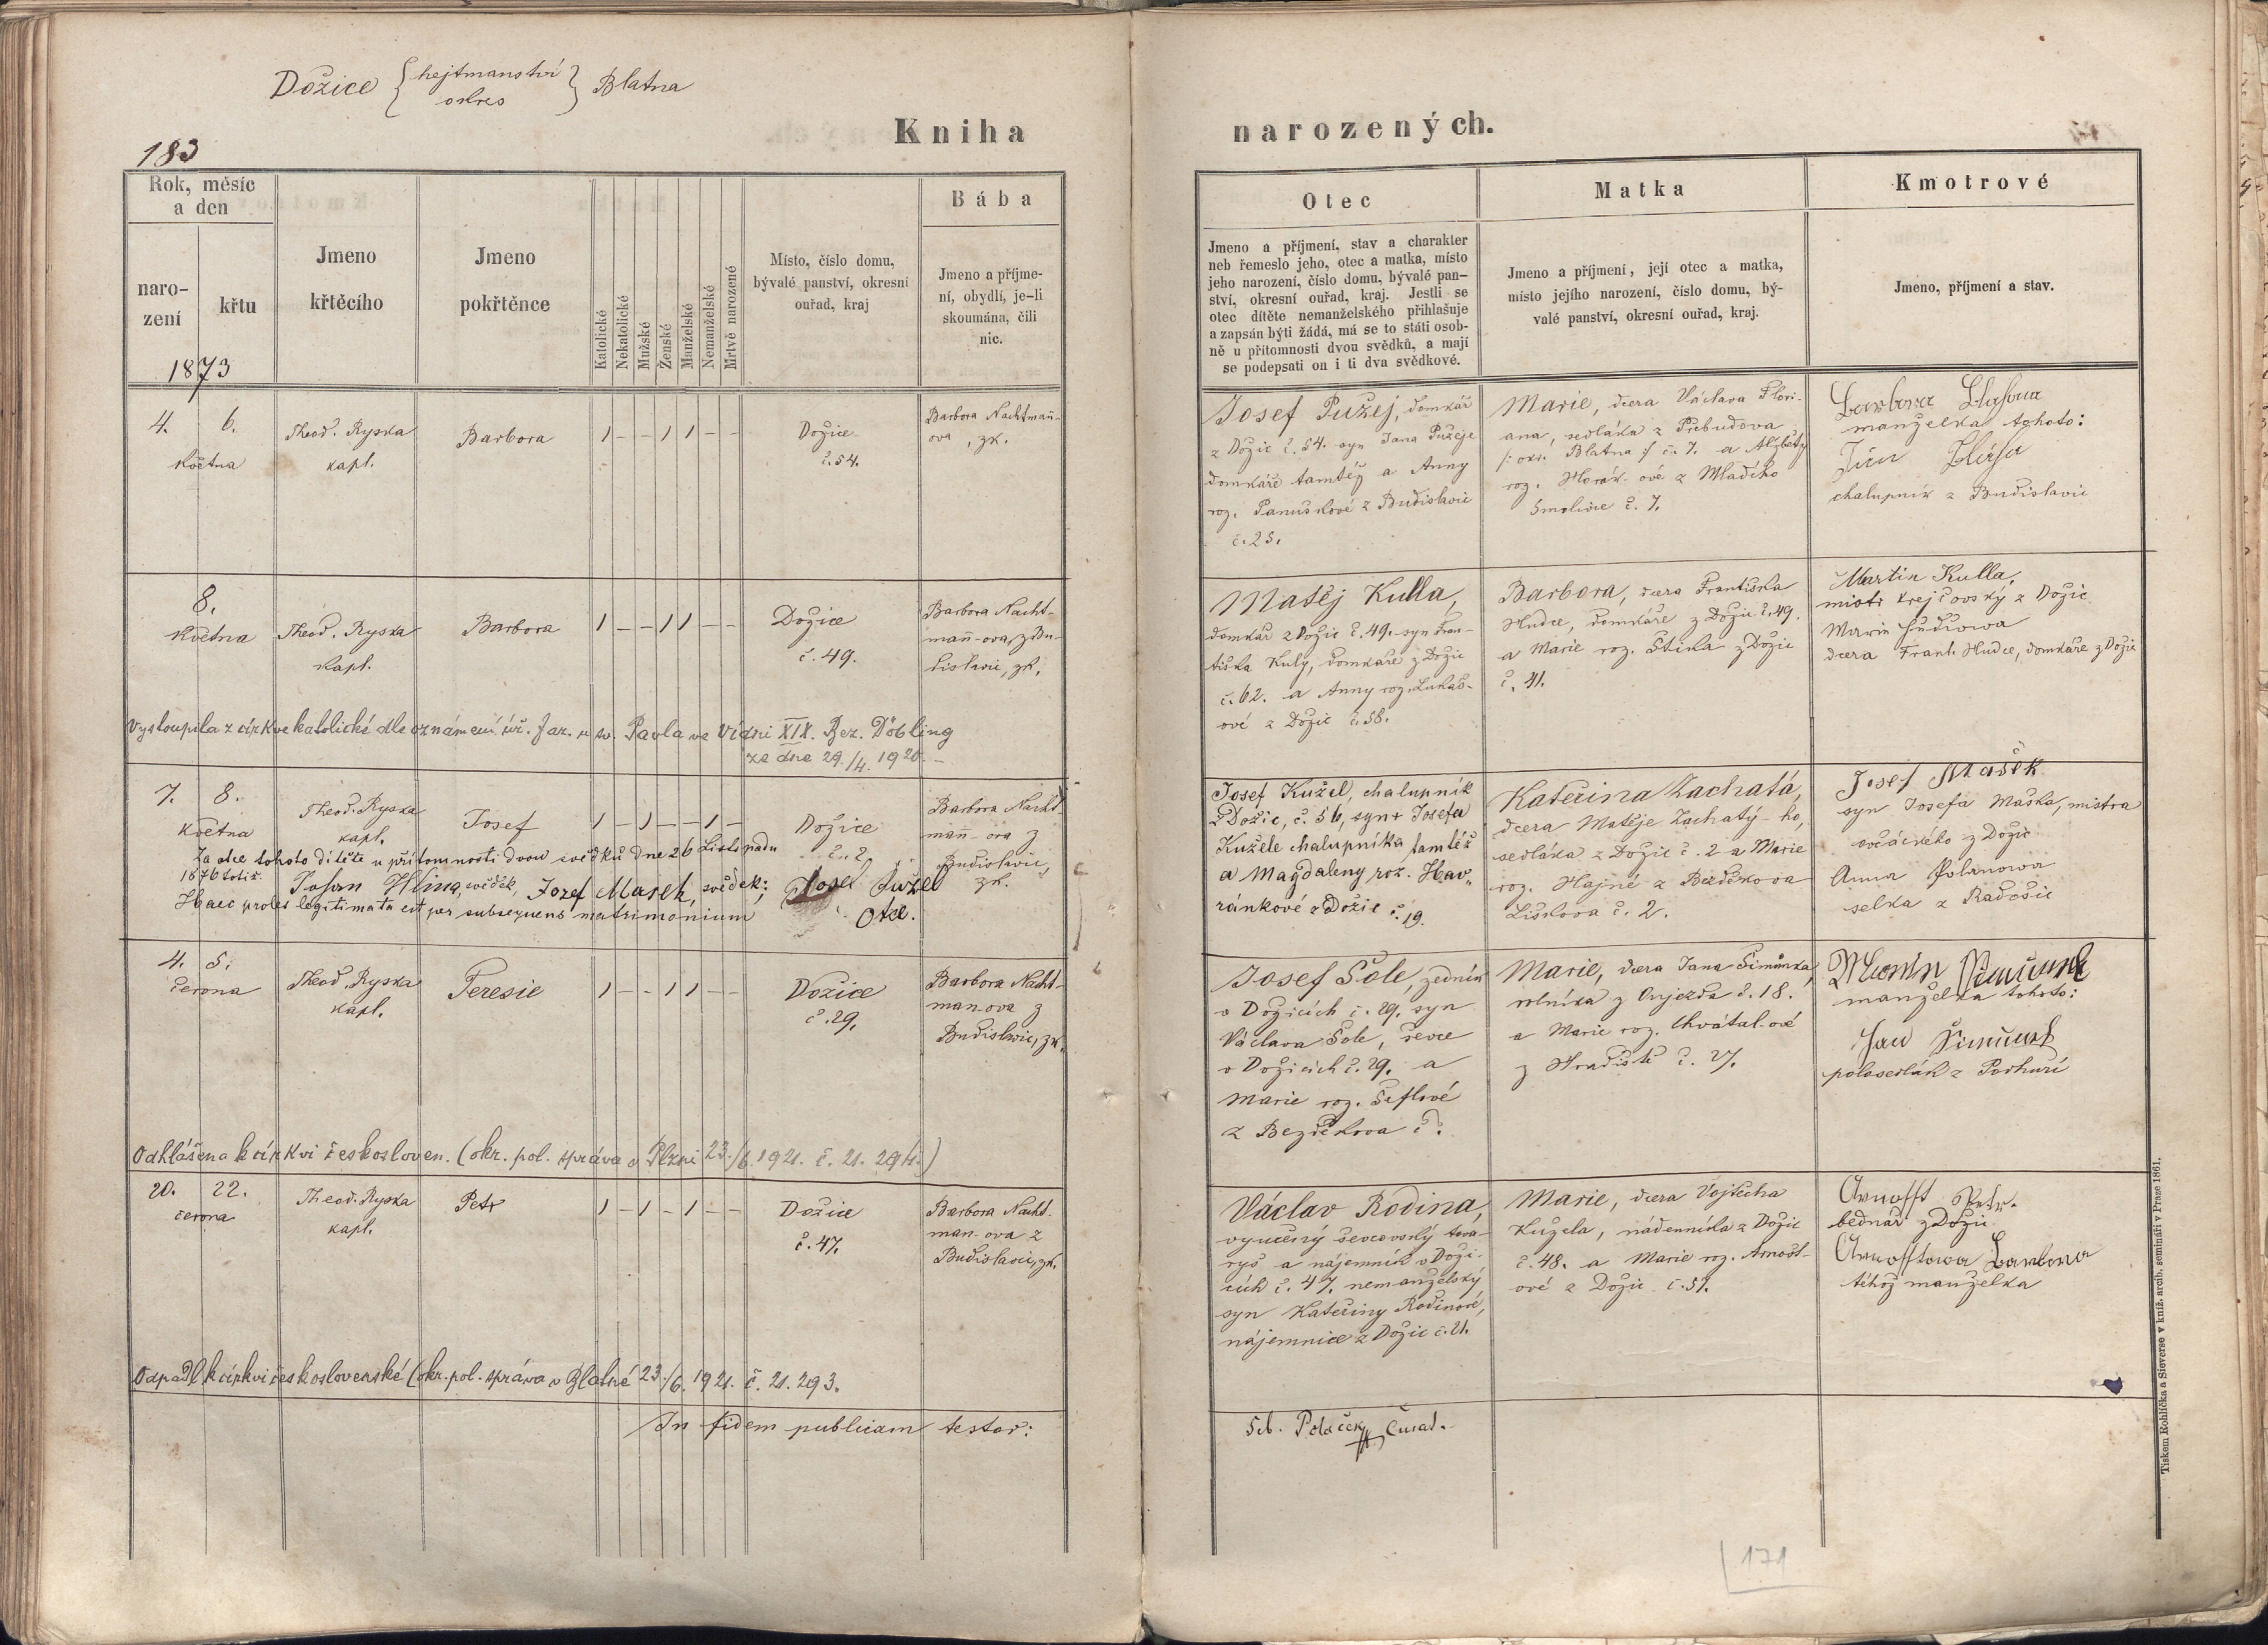 Dožice { hejtmanství
okres } Blatna
183
Kniha narozených.
Rok, měsíc
a den
naro-
zení
křtu
1873
Jmeno
křtěcího
Jmeno
pokřtěnce
Katolické
Nekatolické
Mužské
Ženské
Manželské
Nemanželské
Mrtvě narozené
Místo, číslo domu,
bývalé panství, okresní
ouřad, kraj
Bába
Jmeno a příjme-
ní, obydlí, je-li
skoumána, čili
nic.
Otec
Jmeno a příjmení, stav a charakter
neb řemeslo jeho, otec a matka, místo
jeho narození, číslo domu, bývalé pan-
ství, okresní ouřad, kraj. Jestli se
otec dítěte nemanželského přihlašuje
a zapsán býti žádá, má se to státi osob-
ně u přítomnosti dvou svědků, a mají
se podepsati on i ti dva svědkové.
Matka
Jmeno a příjmení, její otec a matka,
místo jejího narození, číslo domu, bý-
valé panství, okresní ouřad, kraj.
Kmotrové
Jmeno, příjmení a stav.
4. 6.
Května
Theod. Ryska
kapl.
Barbora
1 – – 1 1 – –
Dožice
č. 54.
Barbora Nachtman̄-
ova, zk.
Josef Pužej, domkář
z Dožic č. 54. syn Jana Pužeje
domkáře tamtéž a Anny
roz. Panuškové z Budislavic
č. 25.
Marie, dcera Václava Flori-
ana, sedláka z Přebudova
/: okr. Blatna :/ č. 7. a Alžběty
roz. Horák-ové z Mladého
Smolivce č. 7.
Barbora
manželka tohoto:
chalupník z Budislavic
8.
Května
Theod. Ryska
kapl.
Barbora
1 – – 1 1 – –
Dožice
č. 49.
Barbora Nacht-
man̄-ova, z Bu-
dislavic, zk.
Matěj Kulla,
domkář z Dožic č. 49. syn Fran-
tiška Kuly, domkáře z Dožic
č. 62. a Anny roz. Lukáš-
ové z Dožic č. 58.
Barbora, dcera Františka
Hudce, domkáře z Dožic č. 49.
a Marie roz. Štika z Dožic
č. 41.
Martin Kulla,
mistr krejčovský z Dožic
Marie
dcera Frant. Hudce, domkáře z Dožic
Vystoupila z církve katolické dle oznámení far. u sv. Pavla ve Vídni XIX. Bez. Döbling
ze dne 29./4. 1920. –
7. 8.
Května
Theod. Ryska
kapl.
Josef
1 – 1 – – 1 –
Dožice
č. 2
Barbora Nacht-
man̄-ova z
Budislavic,
zk.
Za otce tohoto dítěte u přítomnosti dvou svědků dne 26 Listopadu
1876
Johan Hlina, svědek, Jozef Mašek, svědek; Josef Kužel
Otec.
Haec proles legitimata est per subsequens matrimonium
Josef Kužel, chalupník
z Dožic, č. 56, syn + Josefa
Kužele chalupníka tamtéž
a Magdaleny roz. Hav„
ránkové z Dožic č. 19.
Kateřina Zachatá,
dcera Matěje Zachatý-ho,
sedláka z Dožic č. 2 a Marie
roz. Hajné z
Liškova č. 2.
Josef Mašek
syn Josefa Maška, mistra
ovčáckého z Dožic
Anna
selka z Radošic
4. 5.
června
Theod. Ryska
kapl.
Teresie
1 – – 1 1 – –
Dožice
č. 29.
Barbora Nacht-
man-ova z
Budislavic, zk.
Josef Šole, zedník
v Dožicích č. 29. syn
Václava Šole, ševce
v Dožicích č. 29. a
Marie roz. Šeflové
z Bezděkova č?
Marie, dcera Jana Šimůnka,
rolníka z Oujezda č. 18.
a Marie roz. Chvátal-ové
z Hradiště č. 27.
manželka tohoto:
Jan Šimůnek
polosedlák z Podhuří
Odhlášena k církvi českosloven. (okr. pol. správa v Plzni 23./6. 1921. č. 21.294.)
20. 22.
června
Theod. Ryska
kapl.
Petr
1 – 1 – 1 – –
Dožice
č. 47.
Barbora Nacht-
man-ova z
Budislavic, zk.
Václav Rodina,
vyučený ševcovský tova-
ryš a nájemník v Doži-
cích č. 47. nemanželský
syn Kateřiny Rodinové,
nájemnice z Dožic č. 21.
Marie, dcera Vojtěcha
Kužela, nádenníka z Dožic
č. 48. a Marie roz. Arnošt-
ové z Dožic č. 51.
Arnosst Petr.
bednář z Dožic
Arnosstowa Barbora
téhož manželka
Odpadl k církvi československé (okr. pol. správa v Blatné 23./6. 1921. č. 21.293.
In fidem publicam testor:
Seb. Poláček, Curat.
171
Tiskem Rohlíčka a Sieverse v kníž. arcib. semináři v Praze 1861.